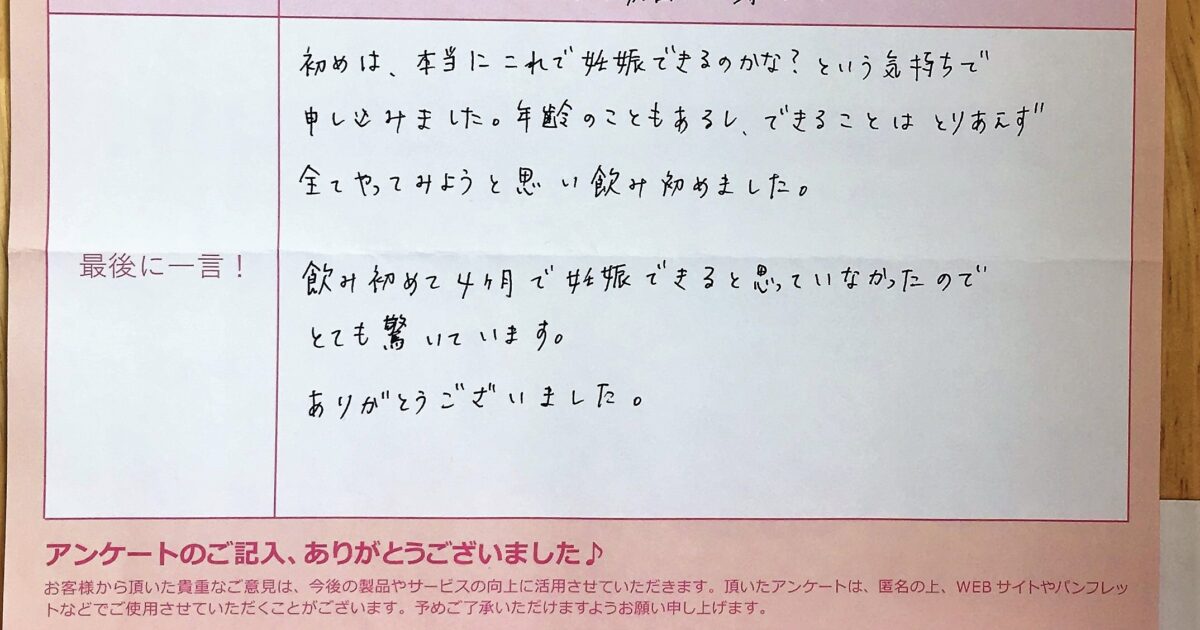 初めは、本当にこれで妊娠できるのかな?という気持ちで
申し込みました。年齢のこともあるし、できることはとりあえず
全てやってみようと思い飲み初めました。
最後に一言!
飲み初めて4ヶ月で妊娠できると思っていなかったので
とても驚いています。
ありがとうございました。
アンケートのご記入、ありがとうございました♪
お客様から頂いた貴重なご意見は、今後の製品やサービスの向上に活用させていただきます。頂いたアンケートは、匿名の上、WEBサイトやパンフレッ
トなどでご使用させていただくことがございます。予めご了承いただけますようお願い申し上げます。